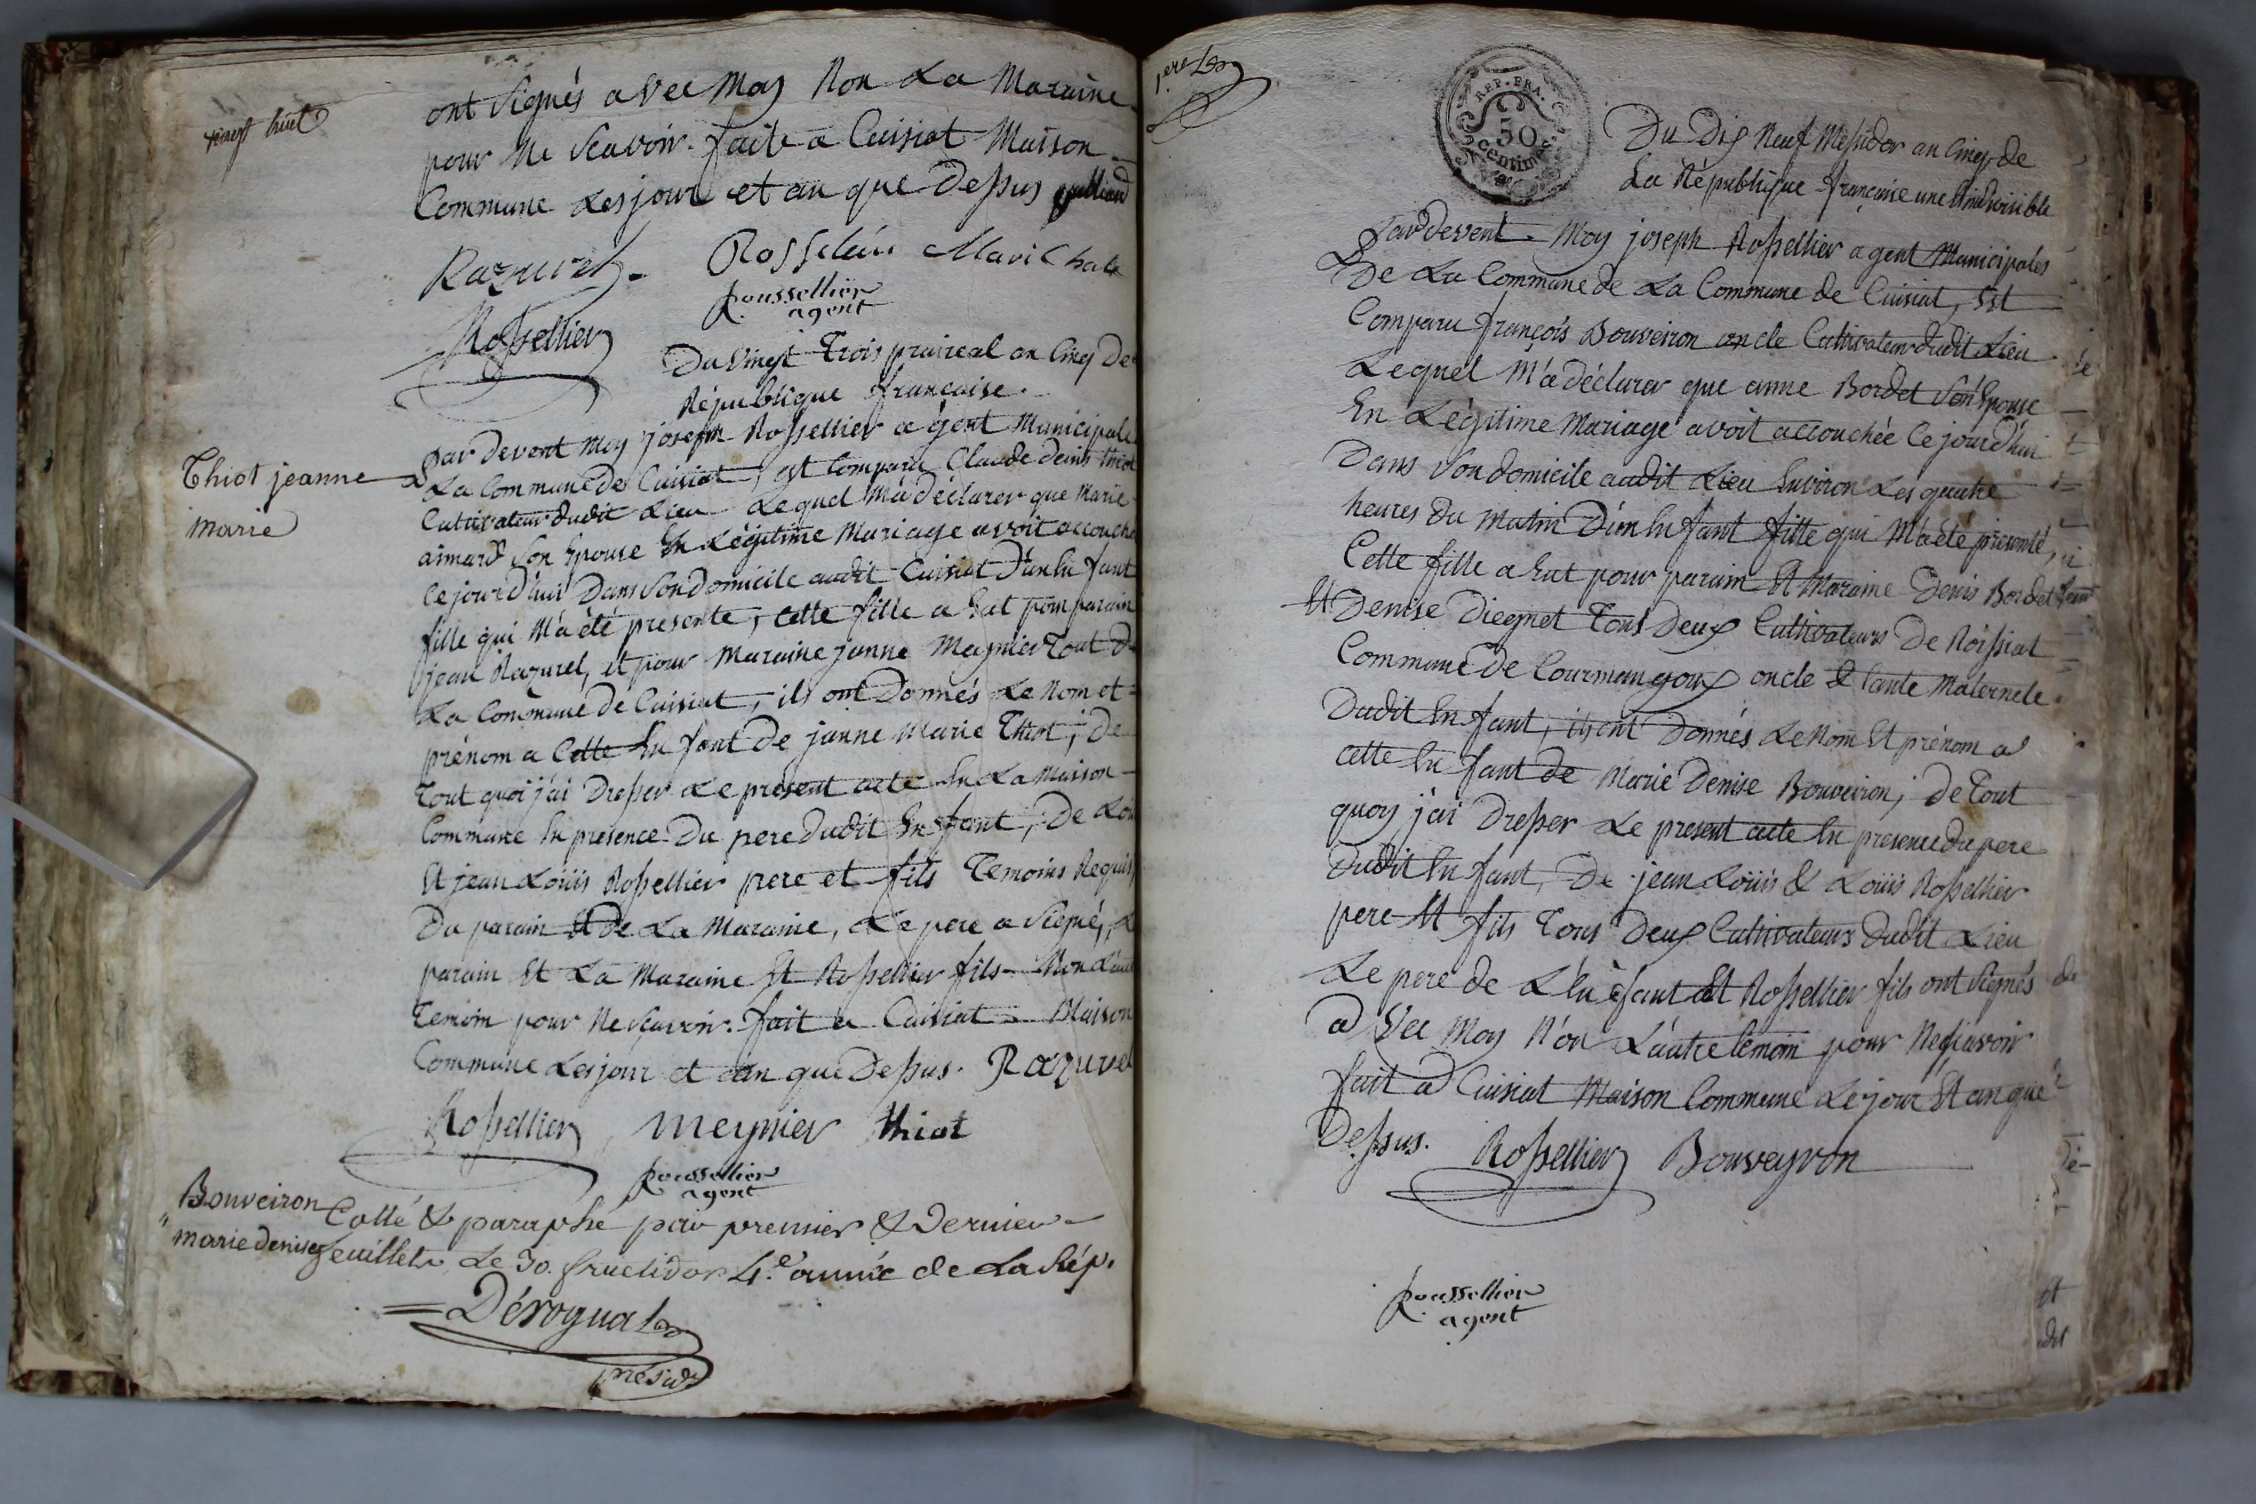 vingt huit
ont signés avec Moy Non La Maraine
pour Ne Scavoir. faite a Cuisiat Maison
Commune Les jour et an que Dessus
Razurel Rosselin Marie
Roussellier
agent
Rossellier
Du Vingt Trois praireal an Cinq De
République française.
Thiot jeanne
marie
Par devent Moy joseph Rossellier agent Municipale
La Commune de Cuisiat, est Comparu Claude denis thiot
Cultivateur dudit Lieu Lequel M'a déclarer que Marie
aimard Son Epouse En Légitime Mariage avoit accouché
Ce jourd'hui Dans Son domicile audit Cuisiat D'un En fant
fille qui M'a été presente, cette fille a Eut pour parain
jean Razurel, et pour Maraine janne Meynier Tout De
La Commune de Cuisiat, ils ont Donnés Le Nom et
prénom a Cette En fant De janne Marie Thiot; De
Tout quoi j'ai Dresser Le present acte En La Maison
Commune En presence Du pere dudit En fant, De Loui
Et jean Loüis Rossellier pere et fils Temoins Requis,
Du parain Et De La Maraine, Le pere a Signé, Le
parain Et La Maraine Et Rossellier fils Non L'autre
Temoin pour Ne Scavoir. fait a Cuisiat Maison
Commune Les jour et an que Dessus. Razurel
Rossellier meynier thiot
Roussellier
agent
Bouveiron
marie denise
Cotté & paraphé par premier & Dernier
feuillets, Le 30. fructidor 4.e année de La Rép.
Dérognat
présid.
1.ere
REP. FRA.
50
centimes
Du Dix Neuf Messidor an Cinq de
La République française une Et indivisible
Par devent Moy joseph Rossellier agent Municipales
De La Commune de La Commune de Cuisiat, Est
Comparu françois Bouveiron oncle Cultivateur dudit Lieu
Lequel M'a déclarer que anne Bordet Son Epouse
En Légitime Mariage avoit accouchée Ce jourd'hui
Dans Son domicile audit Lieu Environ Les quatre
heures du Matin D'un En fant fille qui M'a été presenté,
Cette fille a Eut pour parain Et Maraine Denis Bordet
Et Denise Diegnet Tous Deux Cultivateurs De Roissiat
Commune De Courmangoux oncle & tante Maternele
Dudit En fant, ils ont Donnés Le Nom Et prénom a
cette En fant de Marie Denise Bouveiron; de Tout
quoy j'ai Dresser Le present acte En presence du pere
Dudit En fant, De jean Loüis & Loüis Rossellier
pere Et fils Tous Deux Cultivateurs Dudit Lieu
Le pere de L'En fant Et Rossellier fils ont Signés
a Vec Moy N'on L'autre temoin pour Ne Scavoir
fait a Cuisiat Maison Commune Le jour Et an que
Dessus. Rossellier Bouveyron
Roussellier
agent